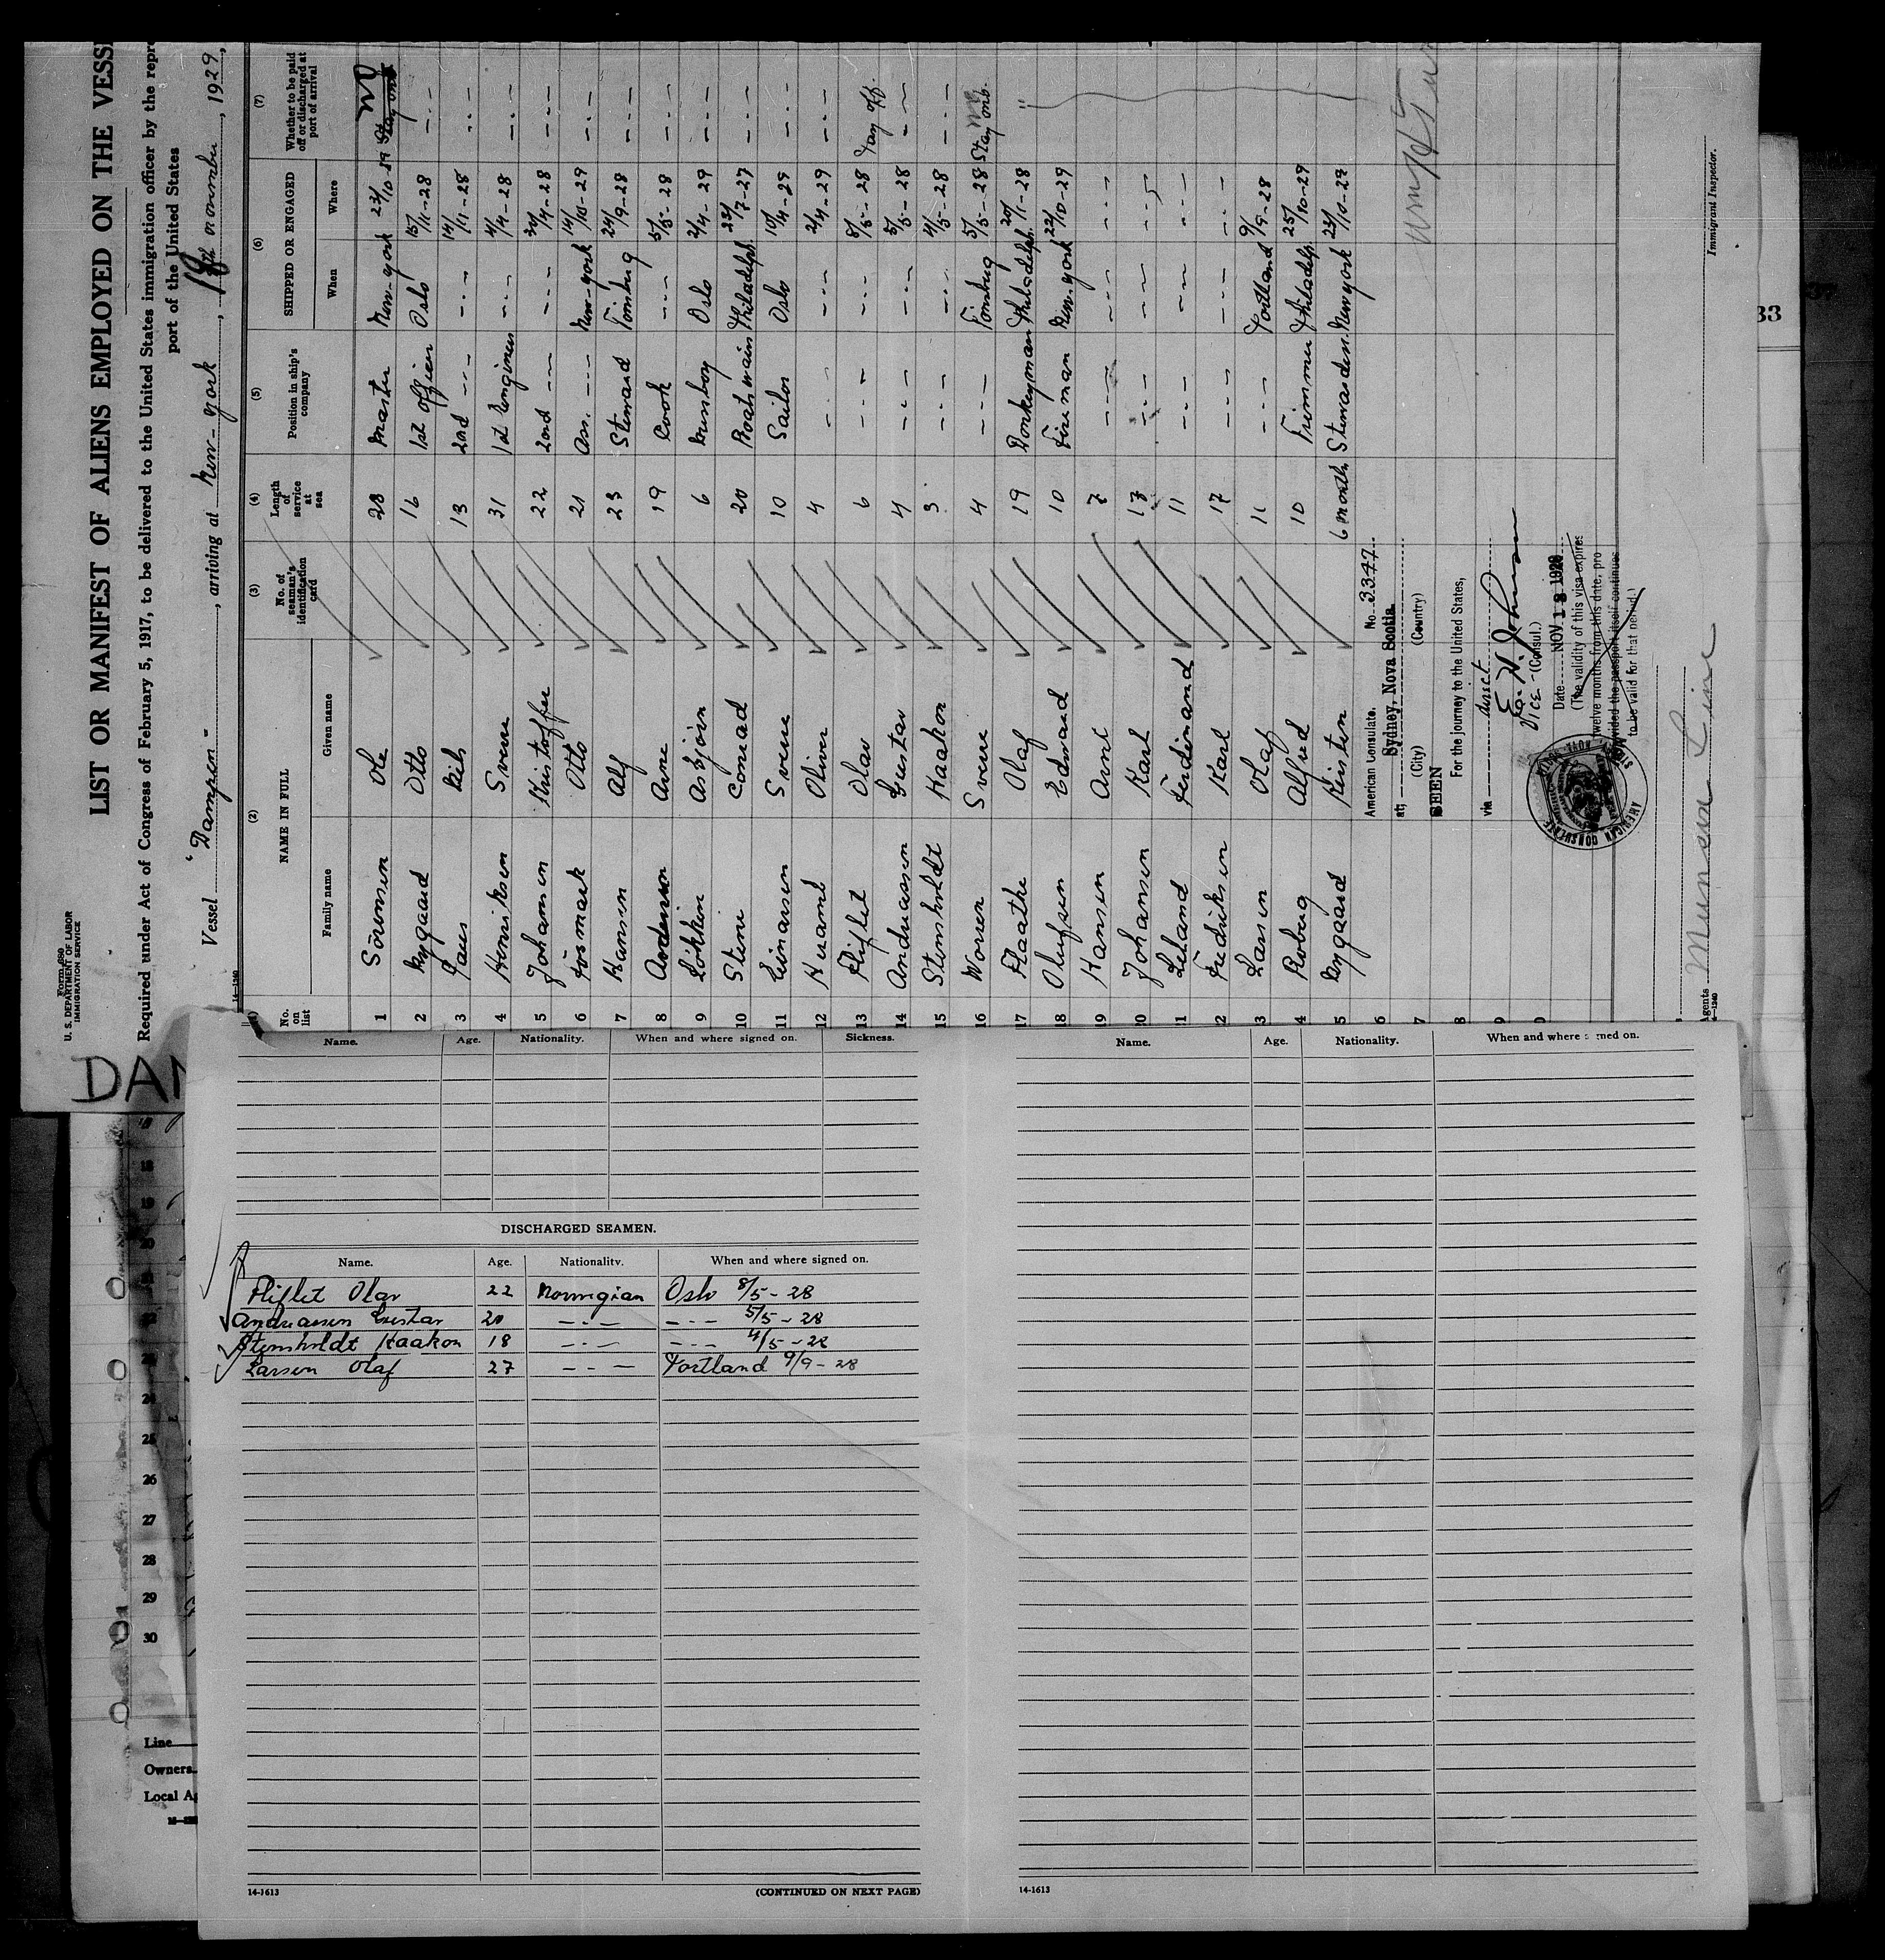 Form 680
U. S. DEPARTMENT OF LABOR
IMMIGRATION SERVICE
LIST OR MANIFEST OF ALIENS EMPLOYED ON THE VESS
Required under Act of Congress of February 5, 1917, to be delivered to the United States immigration officer by the repre
port of the United States
Vessel "Dampen", arriving at New-York, 18th november, 1929,
14—1240
(1) (2) (3) (4) (5) (6) (7)
No. on list
NAME IN FULL
Family name Given name
No. of seaman's identification card
Length of service at sea
Position in ship's company
SHIPPED OR ENGAGED
When Where
Whether to be paid off or discharged at port of arrival
1 Sörensen Ole 28 Master New-York 23/10-29 Stay onb.
2 Nygaard Otto 16 1st officer Oslo 15/11-28 -·-
3 Nils 13 2nd -·- -·- 14/11-28 -·-
4 Henriksen Sverre 31 1st Engineer -·- 4/4-28 -·-
5 Johannesen Kristoffer 22 2nd -·- -·- 20/4-28 -·-
6 Fosmark Otto 21 Ass. -·- New-York 14/10-29 -·-
7 Hansen Alf 23 Steward Tönsberg 24/9-28 -·-
8 Andersen Arne 19 Cook -·- 5/5-28 -·-
9 Lökken Asbjörn 6 Messboy Oslo 2/4-29 -·-
10 Stene Conrad 20 Boatswain Philadelph. 23/7-27 -·-
11 Einarsen Sverre 10 Sailor Oslo 10/4-29 -·-
12 Oliver 4 -·- -·- 2/4-29 -·-
13 Fliflet Olav 6 -·- -·- 8/5-28 Pay off.
14 Andreassen Gustav 4 -·- -·- 5/5-28 -·-
15 Stensholdt Haakon 3 -·- -·- 4/5-28 -·-
16 Sverre 4 -·- Tönsberg 5/5-28 Stay onb.
17 Flaathe Olaf 19 Donkeyman Philadelph. 20/1-28 "
18 Olufsen Edward 10 Fireman New-York 22/10-29
19 Hansen Arent 7 -·- -·- -·-
20 Johansen Karl 17 -·- -·- -·-
21 Leland Ferdinand 11 -·- -·- -·-
22 Fredriksen Karl 17 -·- -·- -·-
3 Larsen Olaf 11 -·- Portland 9/9-28
4 Roberg Alfred 10 Trimmer Philadelp. 25/10-29
5 Nygaard Kirsten 6 month Stewardess. New York 23/10-29
6
7
8
9
0
American Consulate, No. 3347
at Sydney, Nova Scotia
(City) (Country)
SEEN
For the journey to the United States,
via direct
E. W. Johnson
Vice-(Consul.)
Date NOV 13 1929
(The validity of this visa expires
twelve months from this date, pro
vided the passport itself continues
to be valid for that period.)
AMERICAN CONSULATE
Agents Munson Line
14—1240
Immigrant Inspector.
33
DAM
Name. Age. Nationality. When and where signed on. Sickness.
DISCHARGED SEAMEN.
Name. Age. Nationality. When and where signed on.
Fliflet Olav 22 Norwegian Oslo 8/5-28
Andreassen Gustav 20 -·- -·- 5/5-28
Stensholdt Haakon 18 -·- -·- 4/5-28
Larsen Olaf 27 -·- Portland 9/9-28
14-1613
(CONTINUED ON NEXT PAGE)
Name. Age. Nationality. When and where signed on.
14-1613
18
19
20
24
25
26
27
28
29
30
Line
Owners
Local A